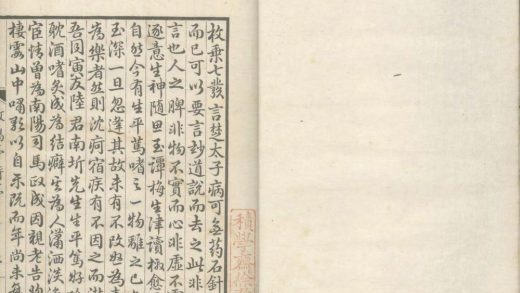 枚乘七發言楚太子病可無药石針
而已可以要言妙道說而去之此非
言也人之脾非物不實而心非虛不
逐意生神随思玉譚梅生津讀檄愈
自然今有生平篤嗜之一物離之已
玉深一旦忽逢其故未有不改为喜
為樂者然則沈疴宿疾有不因之而
吾同寅友陸君南圻先生生平篤好
耽酒嗜炙成為结癖生為人瀟洒淡
宦情曾為南陽司馬政成因親老告
棲霞山中嘯歌以自樂既而年尚未
積學齋徐